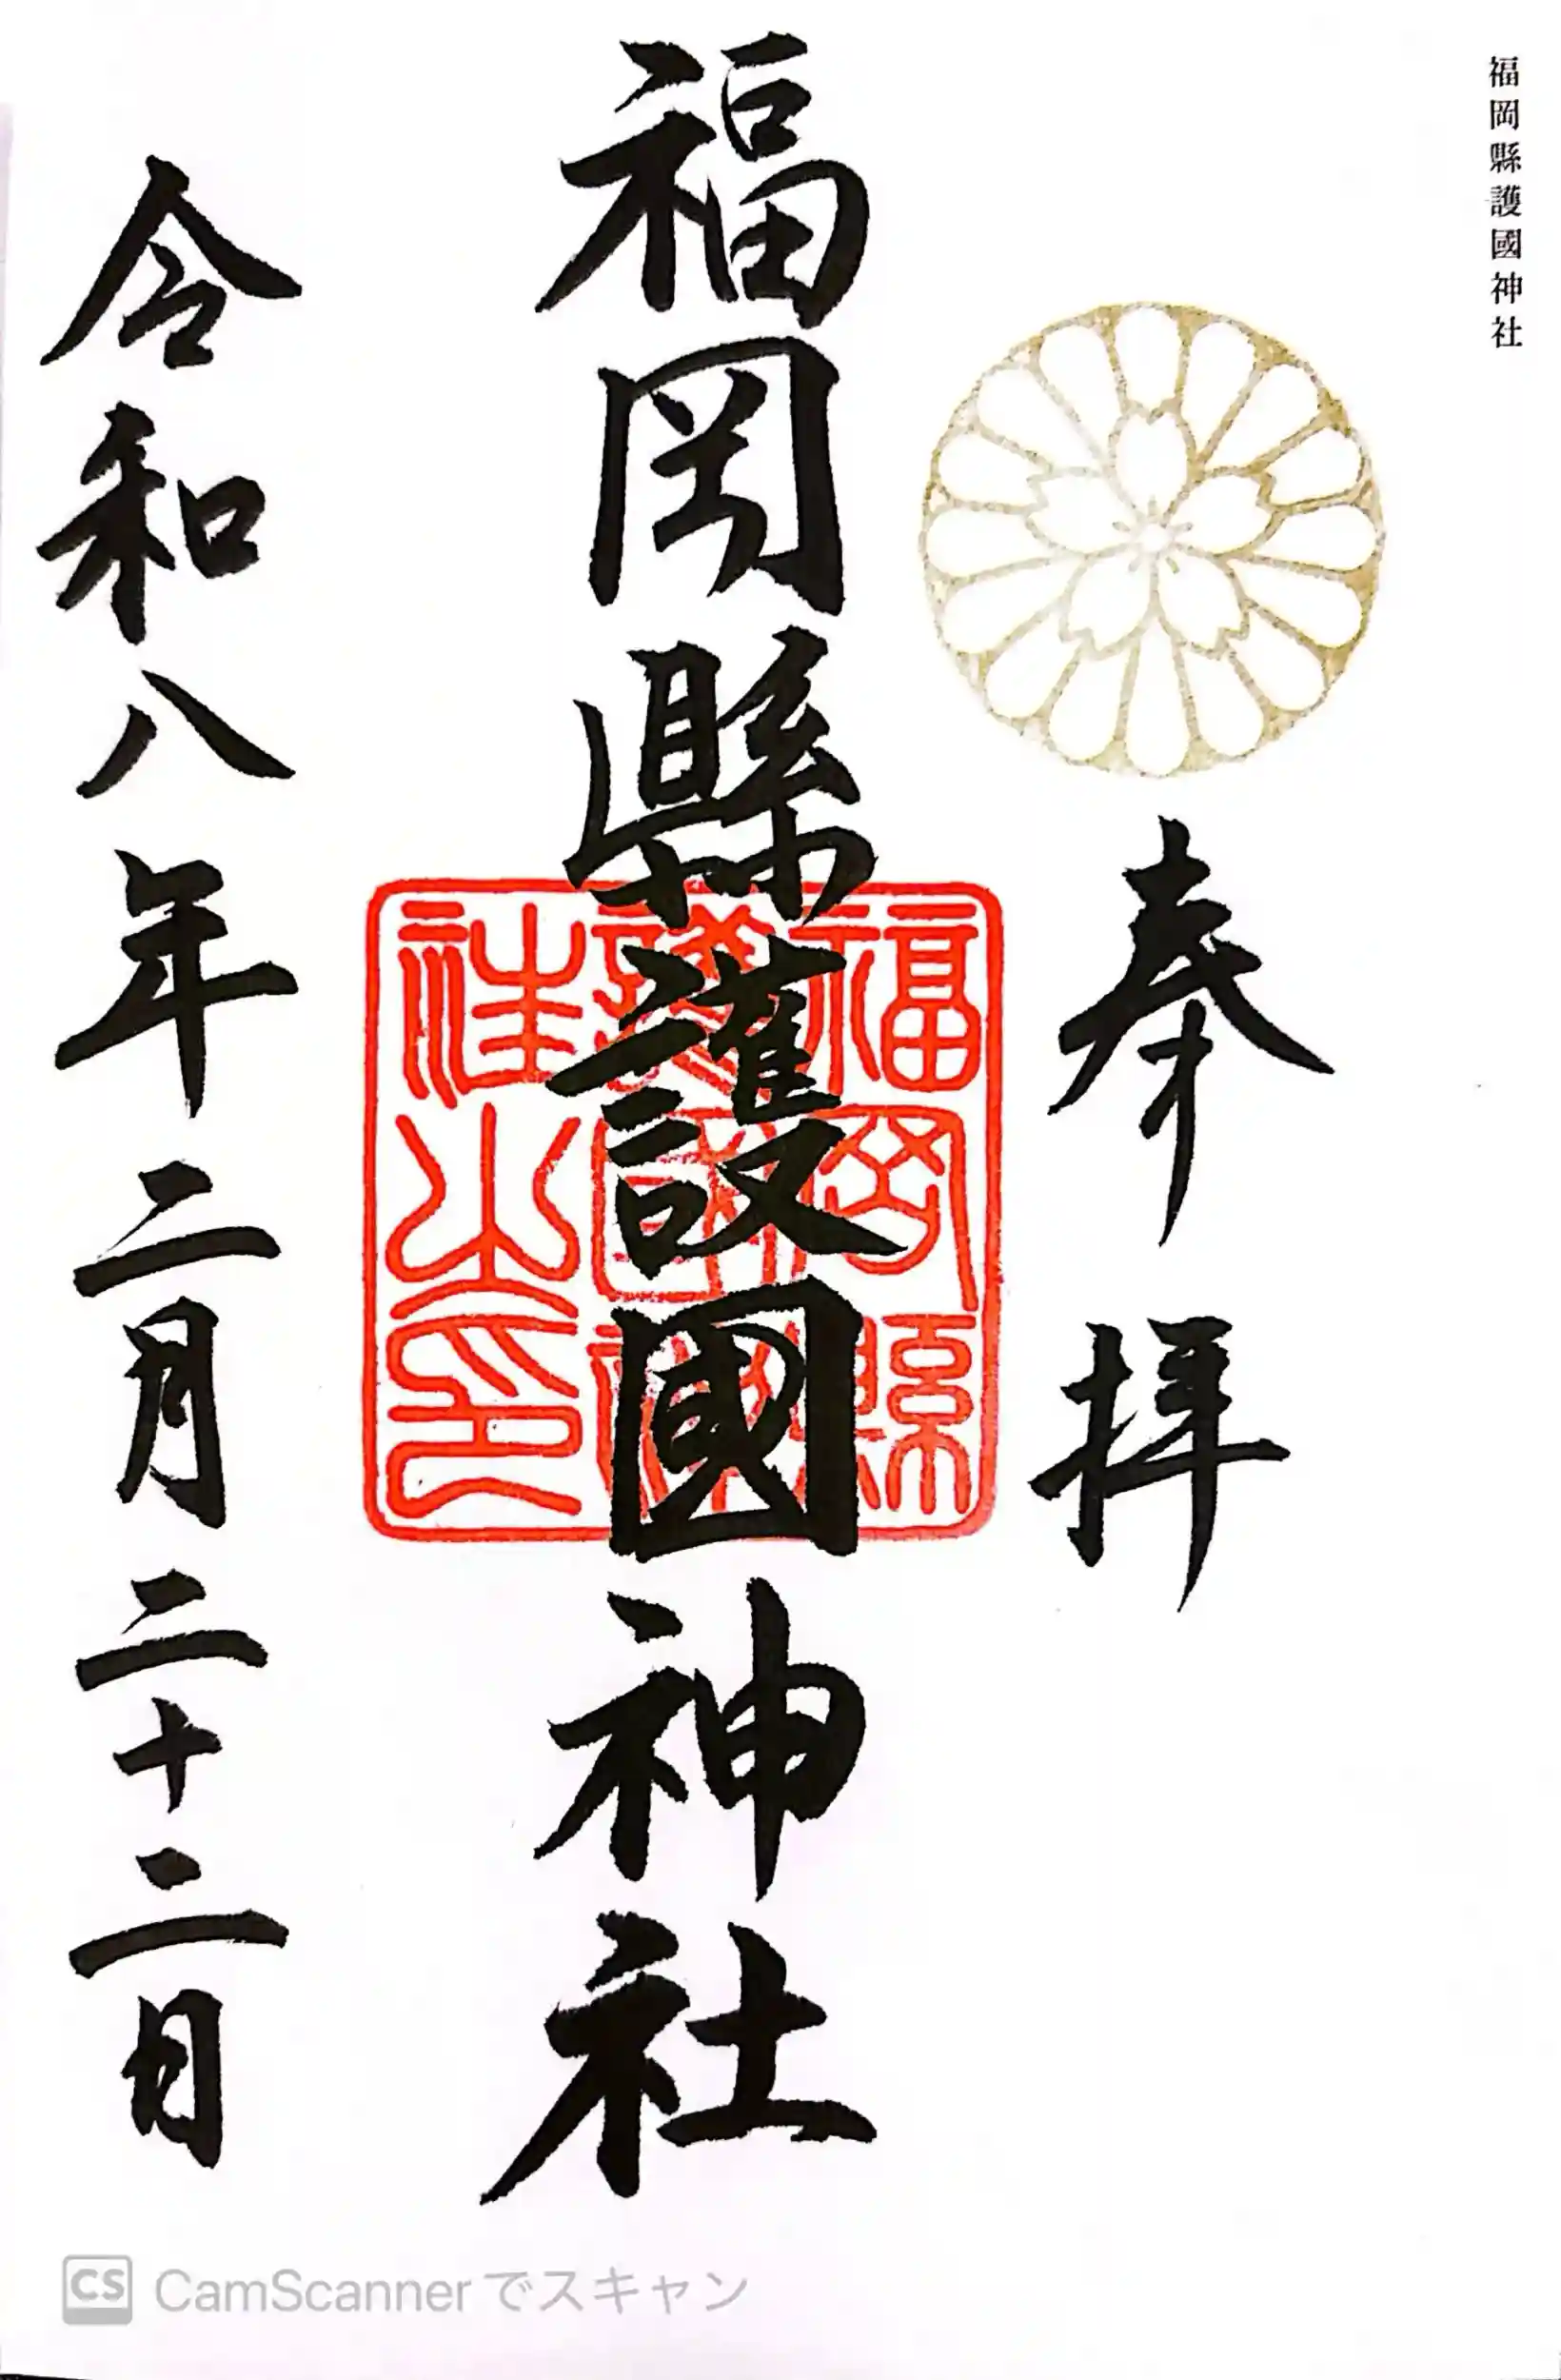 福岡縣護國神社
奉拝
福岡縣護國神社
福岡縣
護國神
社之印
令和八年二月二十二日
CS CamScannerでスキャン